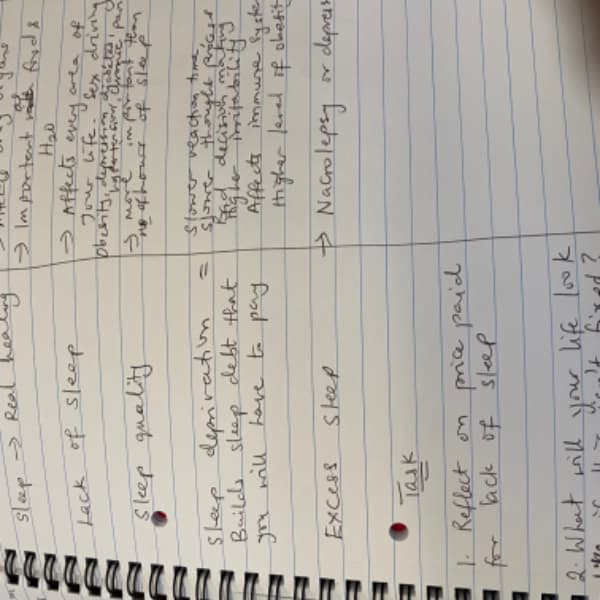 Sleep → Real healing
→ Important as food &
H2O
Lack of Sleep → Affects every area of
your life. Sex driving
Obesity, depression, diabetes,
hypertension, chronic pain
Sleep quality → more important than
no of hours of sleep
Sleep deprivation =
Builds sleep debt that
you will have to pay
Slower reaction time
Slower thought process
Bad decision making
Higher irritability
Affects immune syste
Higher level of obesit
Excess Sleep → Nacrolepsy or depress
Task
1. Reflect on price paid
for lack of sleep
2. What will your life look